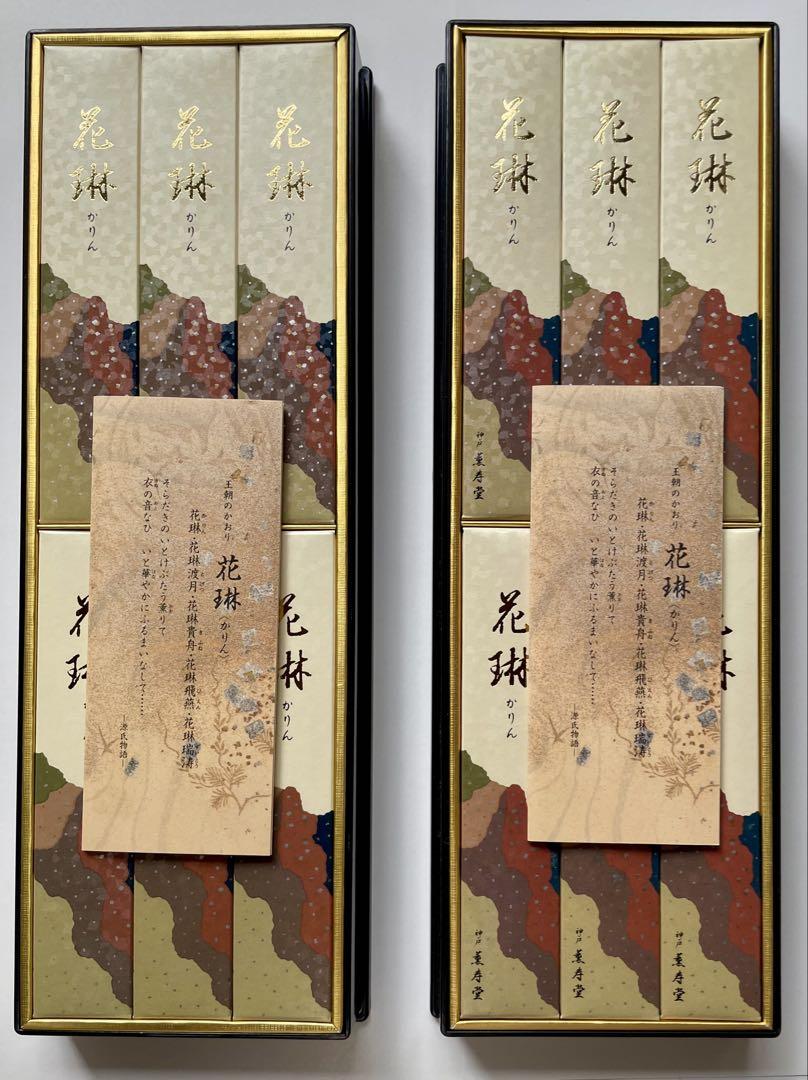 花琳
かりん
花琳
かりん
花琳
かりん
花
琳
花琳
かりん
王朝のかおり
花琳〈かりん〉
花琳・花琳渡月・花琳貴舟・花琳飛燕・花琳瑞涛
そらだきのいとけぶたう薫りて
衣の音なひ いと華やかにふるまいなして……
―源氏物語―
花琳
かりん
花琳
かりん
花琳
かりん
神戸 薫寿堂
花琳
かりん
神戸 薫寿堂
神戸 薫寿堂
神戸 薫寿堂
王朝のかおり
花琳〈かりん〉
花琳・花琳渡月・花琳貴舟・花琳飛燕・花琳瑞涛
そらだきのいとけぶたう薫りて
衣の音なひ いと華やかにふるまいなして……
―源氏物語―